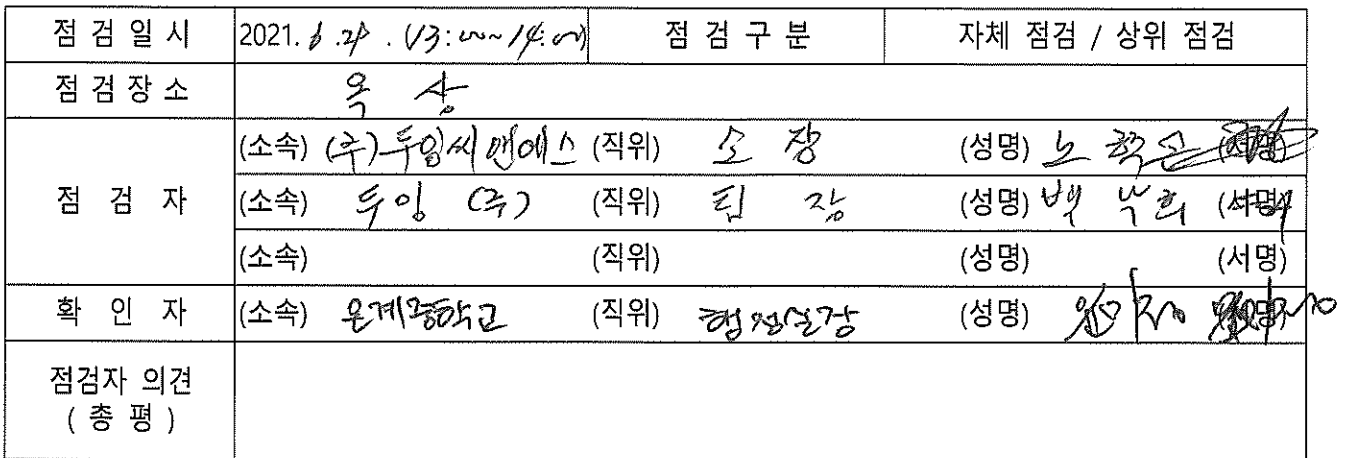 점 검 일 시 2021. 6 . (13:00~14:00) 점 검 구 분 자체 점검 / 상위 점검
점 검 장 소 옥 상
(소속) (주)두잉씨앤에스 (직위) 소 장 (성명) 노 (서명)
점 검 자 (소속) 두잉 (주) (직위) 팀 장 (성명) 백 (서명)
(소속) (직위) (성명) (서명)
확 인 자 (소속) 은계중학교 (직위) 행정실장 (성명) (서명)
점검자 의견
( 총 평 )